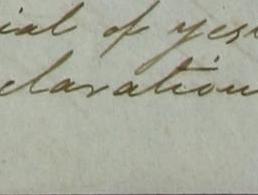 ial of yes
claration